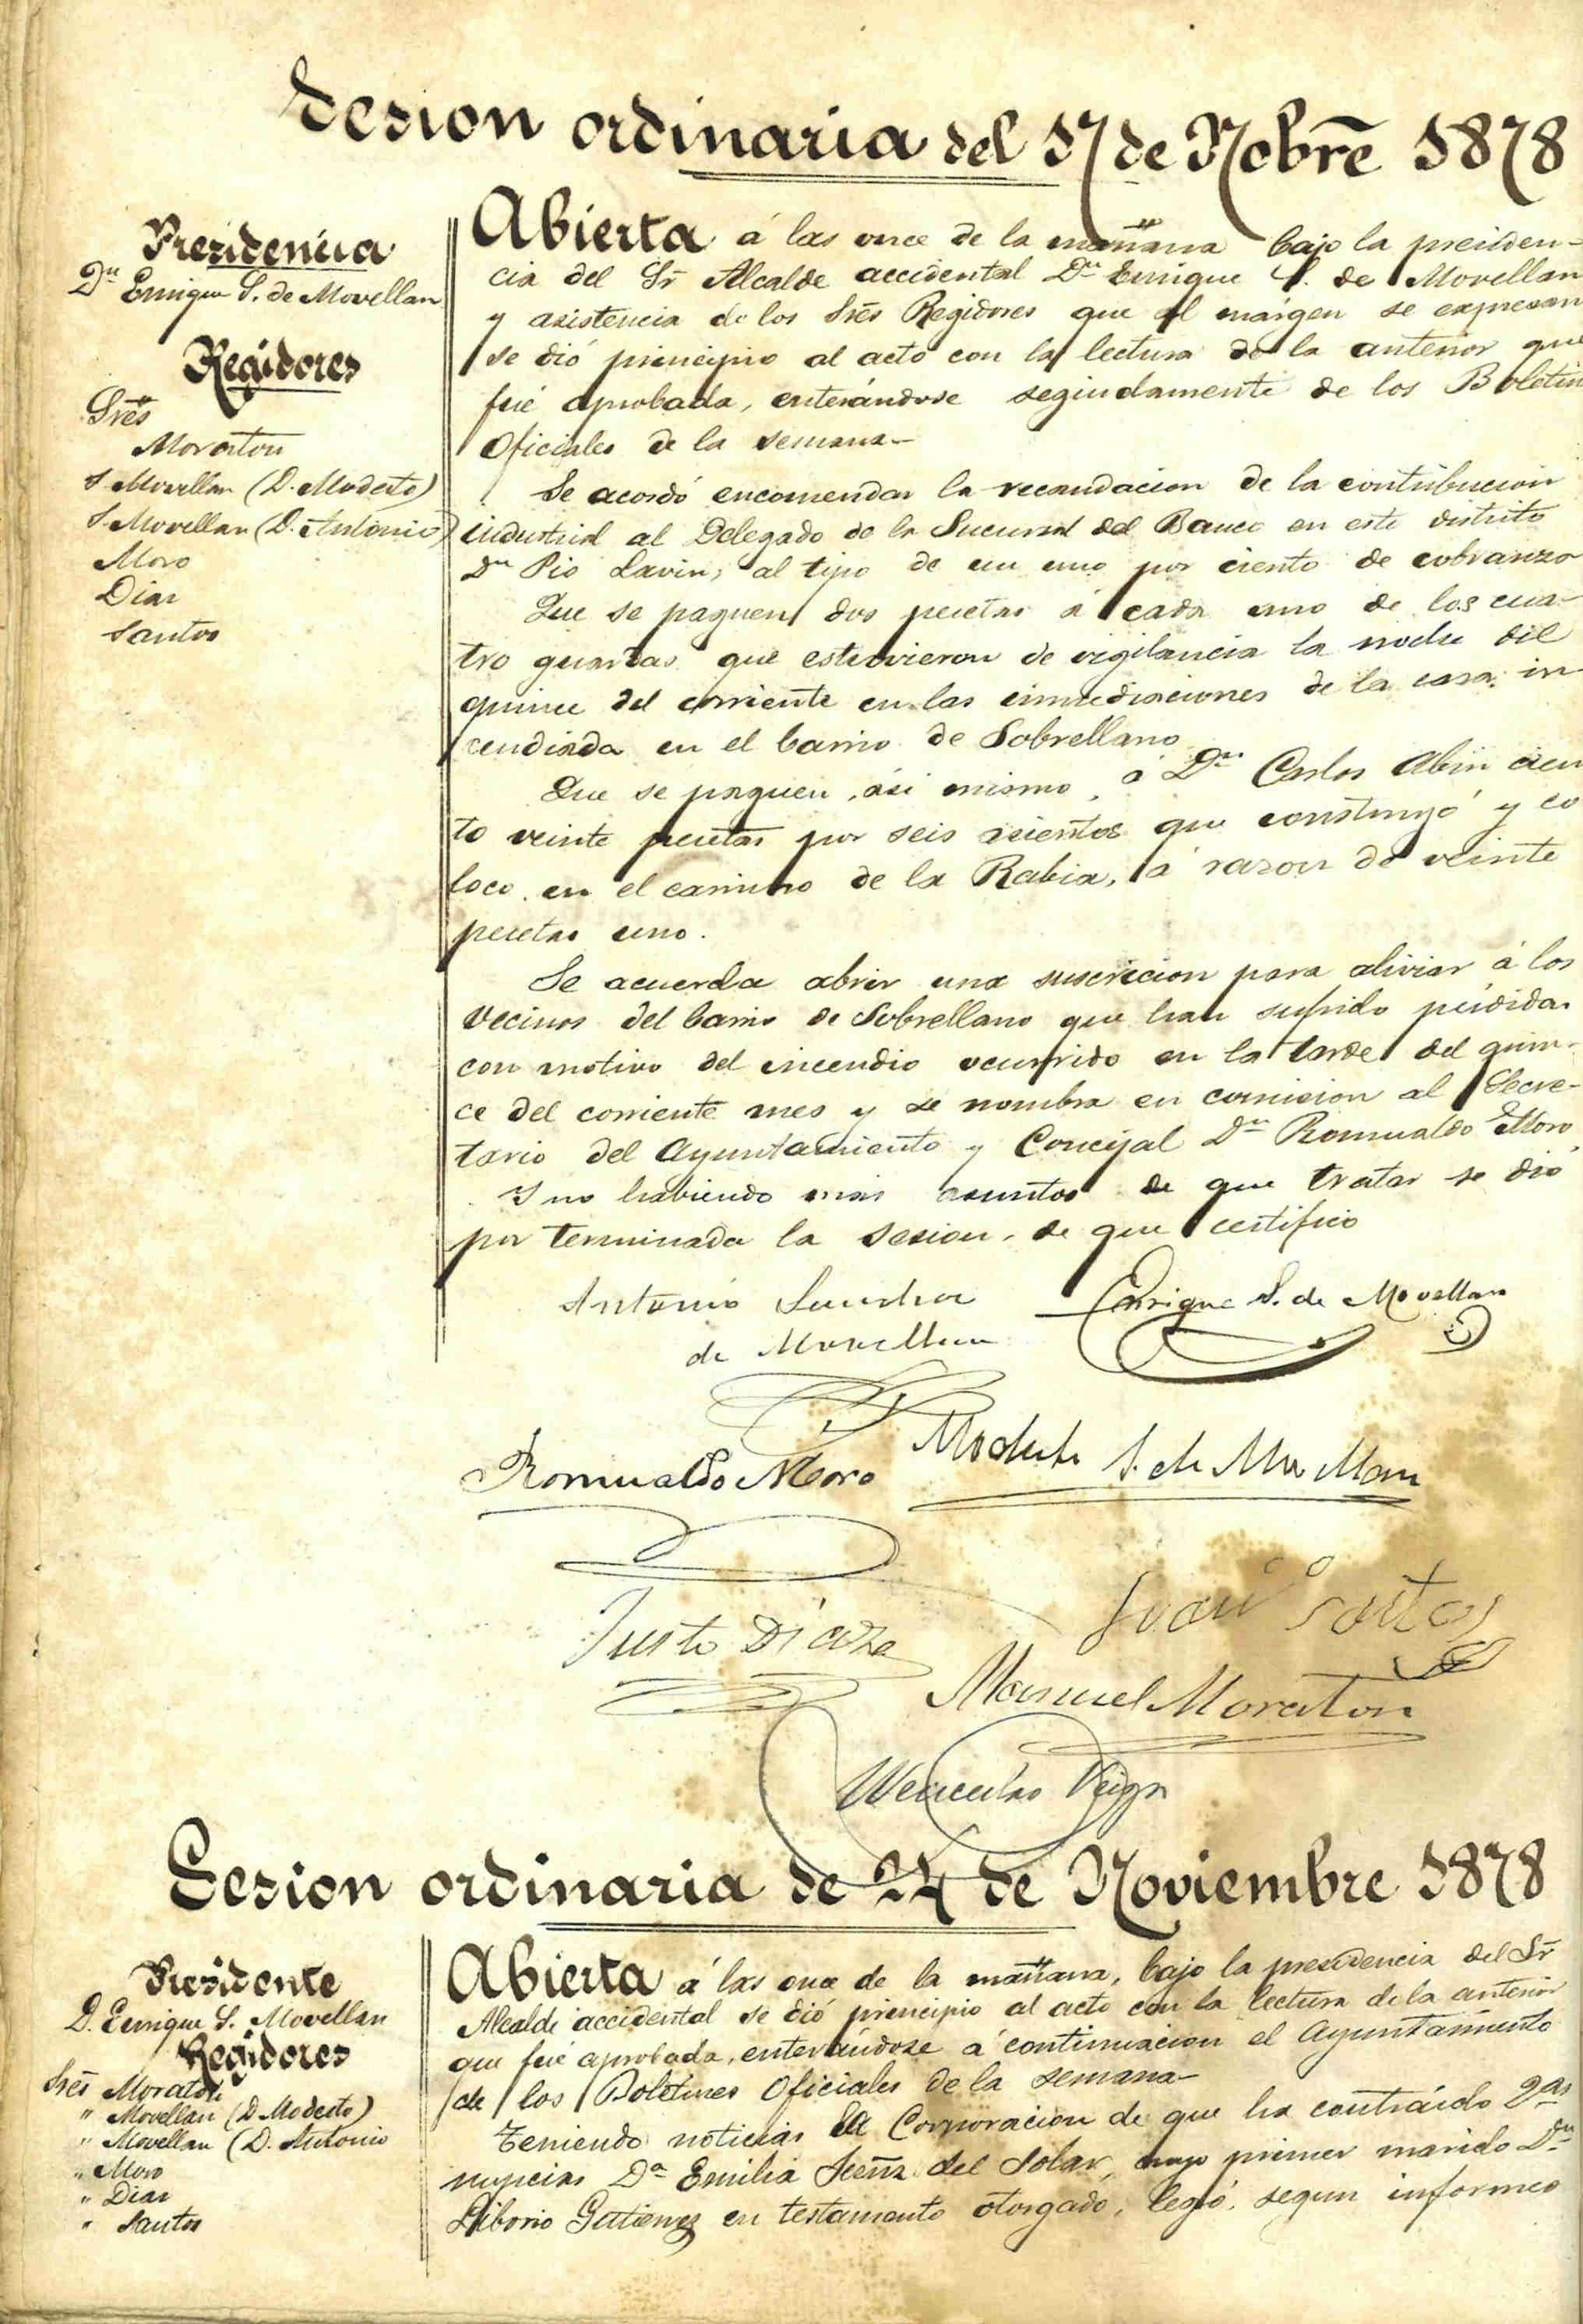 Sesion ordinaria del 17 de Nobre 1878
Presidencia
Dn Enrique S. de Movellan
Regidores
Sres
Moraton
S. Movellan (D. Modesto)
S. Movellan (D. Antonio)
Moro
Diaz
Santos
Abierta á las once de la mañana bajo la presiden-
cia del Sr Alcalde accidental Dn Enrique S. de Movellan
y asistencia de los Sres Regidores que al márgen se expresan
se dió principio al acto con la lectura de la anterior que
fué aprobada, enterándose seguidamente de los Boletin
Oficiales de la semana-
Se acordó encomendar la recaudacion de la contribucion
industrial al Delegado de la Sucursal del Banco en este distrito
Dn Pio Lavin, al tipo de un uno por ciento de cobranza
Que se paguen dos pesetas á cada uno de los cua-
tro guardas que estuvieron de vigilancia la noche del
quince del corriente en las inmediaciones de la casa in
cendiada en el barrio de Sobrellano
Que se paguen, asi mismo, á Dn Carlos Abin cien
to veinte pesetas por seis asientos que construyó y co
loco en el camino de la Rabia, á razon de veinte
pesetas uno.
Se acuerda abrir una suscricion para aliviar á los
vecinos del barrio de Sobrellano que han sufrido pérdidas
con motivo del incendio ocurrido en la tarde del quin-
ce del corriente mes y se nombra en comision al Secre-
tario del Ayuntamiento y Concejal Dn Romualdo Moro
Y no habiendo mas asuntos de que tratar se dió
por terminada la sesion, de que certifico
Antonio Sanchez
de Movellan
Enrique S. de Movellan
Romualdo Moro
Modesto S. de Movellan
Justo Diaz
Juan Santos
Manuel Moraton
Wenceslao Veiga
Sesion ordinaria de 24 de Noviembre 1878
Presidente
D. Enrique S. Movellan
Regidores
Sres Moraton
" Movellan (D. Modesto)
" Movellan (D. Antonio
" Moro
" Diaz
" Santos
Abierta á las once de la mañana, bajo la presidencia del Sr
Alcalde accidental se dió principio al acto con la lectura de la anterior
que fué aprobada, enterándose á continuacion el Ayuntamiento
de los Boletines Oficiales de la semana-
Teniendo noticias la Corporacion de que ha contraído 2as
nupcias Da Emilia del Solar, cuyo primer marido Dn
Liborio Gutierrez en testamento otorgado, legó, segun informes